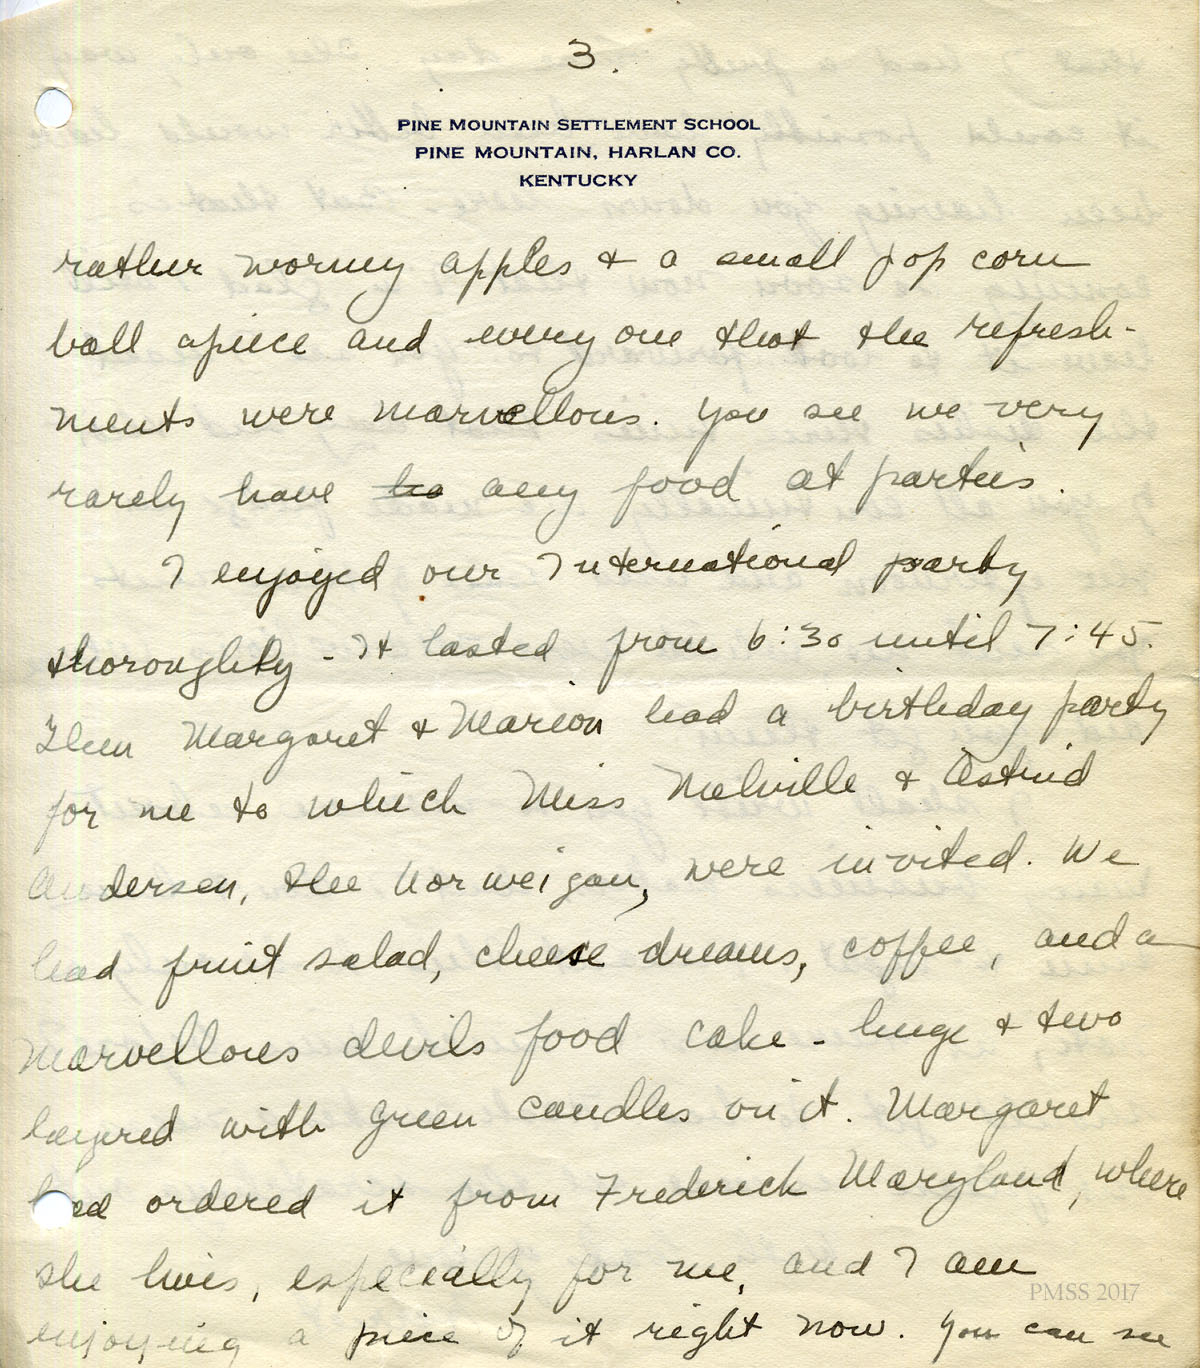 3.
PINE MOUNTAIN SETTLEMENT SCHOOL
PINE MOUNTAIN, HARLAN CO.
KENTUCKY
rather wormy apples + a small pop corn
ball apiece and every one that the refresh-
ments were marvellous. You see we very
rarely have ha any food at parties.
I enjoyed our International party
thoroughly - It lasted from 6:30 until 7:45.
Then Margaret + Marion had a birthday party
for me to which Miss Melville + Astrid
Andersen, the Norweigan, were invited. We
had fruit salad, cheese dreams, coffee, and a
marvellous devils food cake - huge + two
layered with green candles on it. Margaret
had ordered it from Frederick Maryland, where
she lives, especially for me, and I am
enjoying a piece of it right now. You can see
PMSS 2017